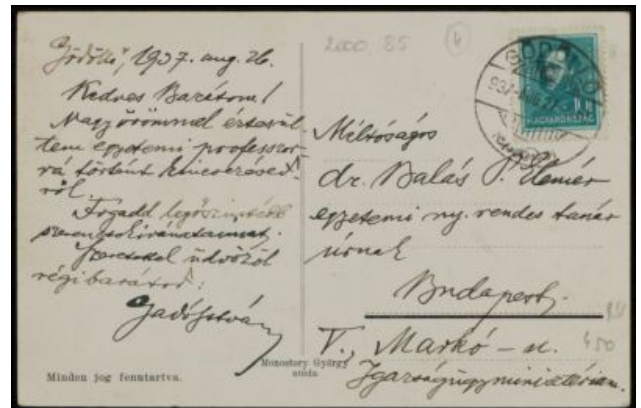 Gödöllő, 1937. aug. 26.
Kedves Barátom!
Nagy örömmel értesül-
tem egyetemi professzor-
rá történt kinevezésed-
ről.
Fogadd legőszintébb
szerencsekívánataimat.
Szeretettel üdvözöl
régi barátod:
Gadó István
Minden jog fenntartva.
Monostory György
utóda
2000. 85
MAGYARORSZÁG
10
Méltóságos
dr. Balás P. Elemér
egyetemi ny. rendes tanár
úrnak
Budapest.
V., Markó-u.
Igazságügyminisztérium.
450